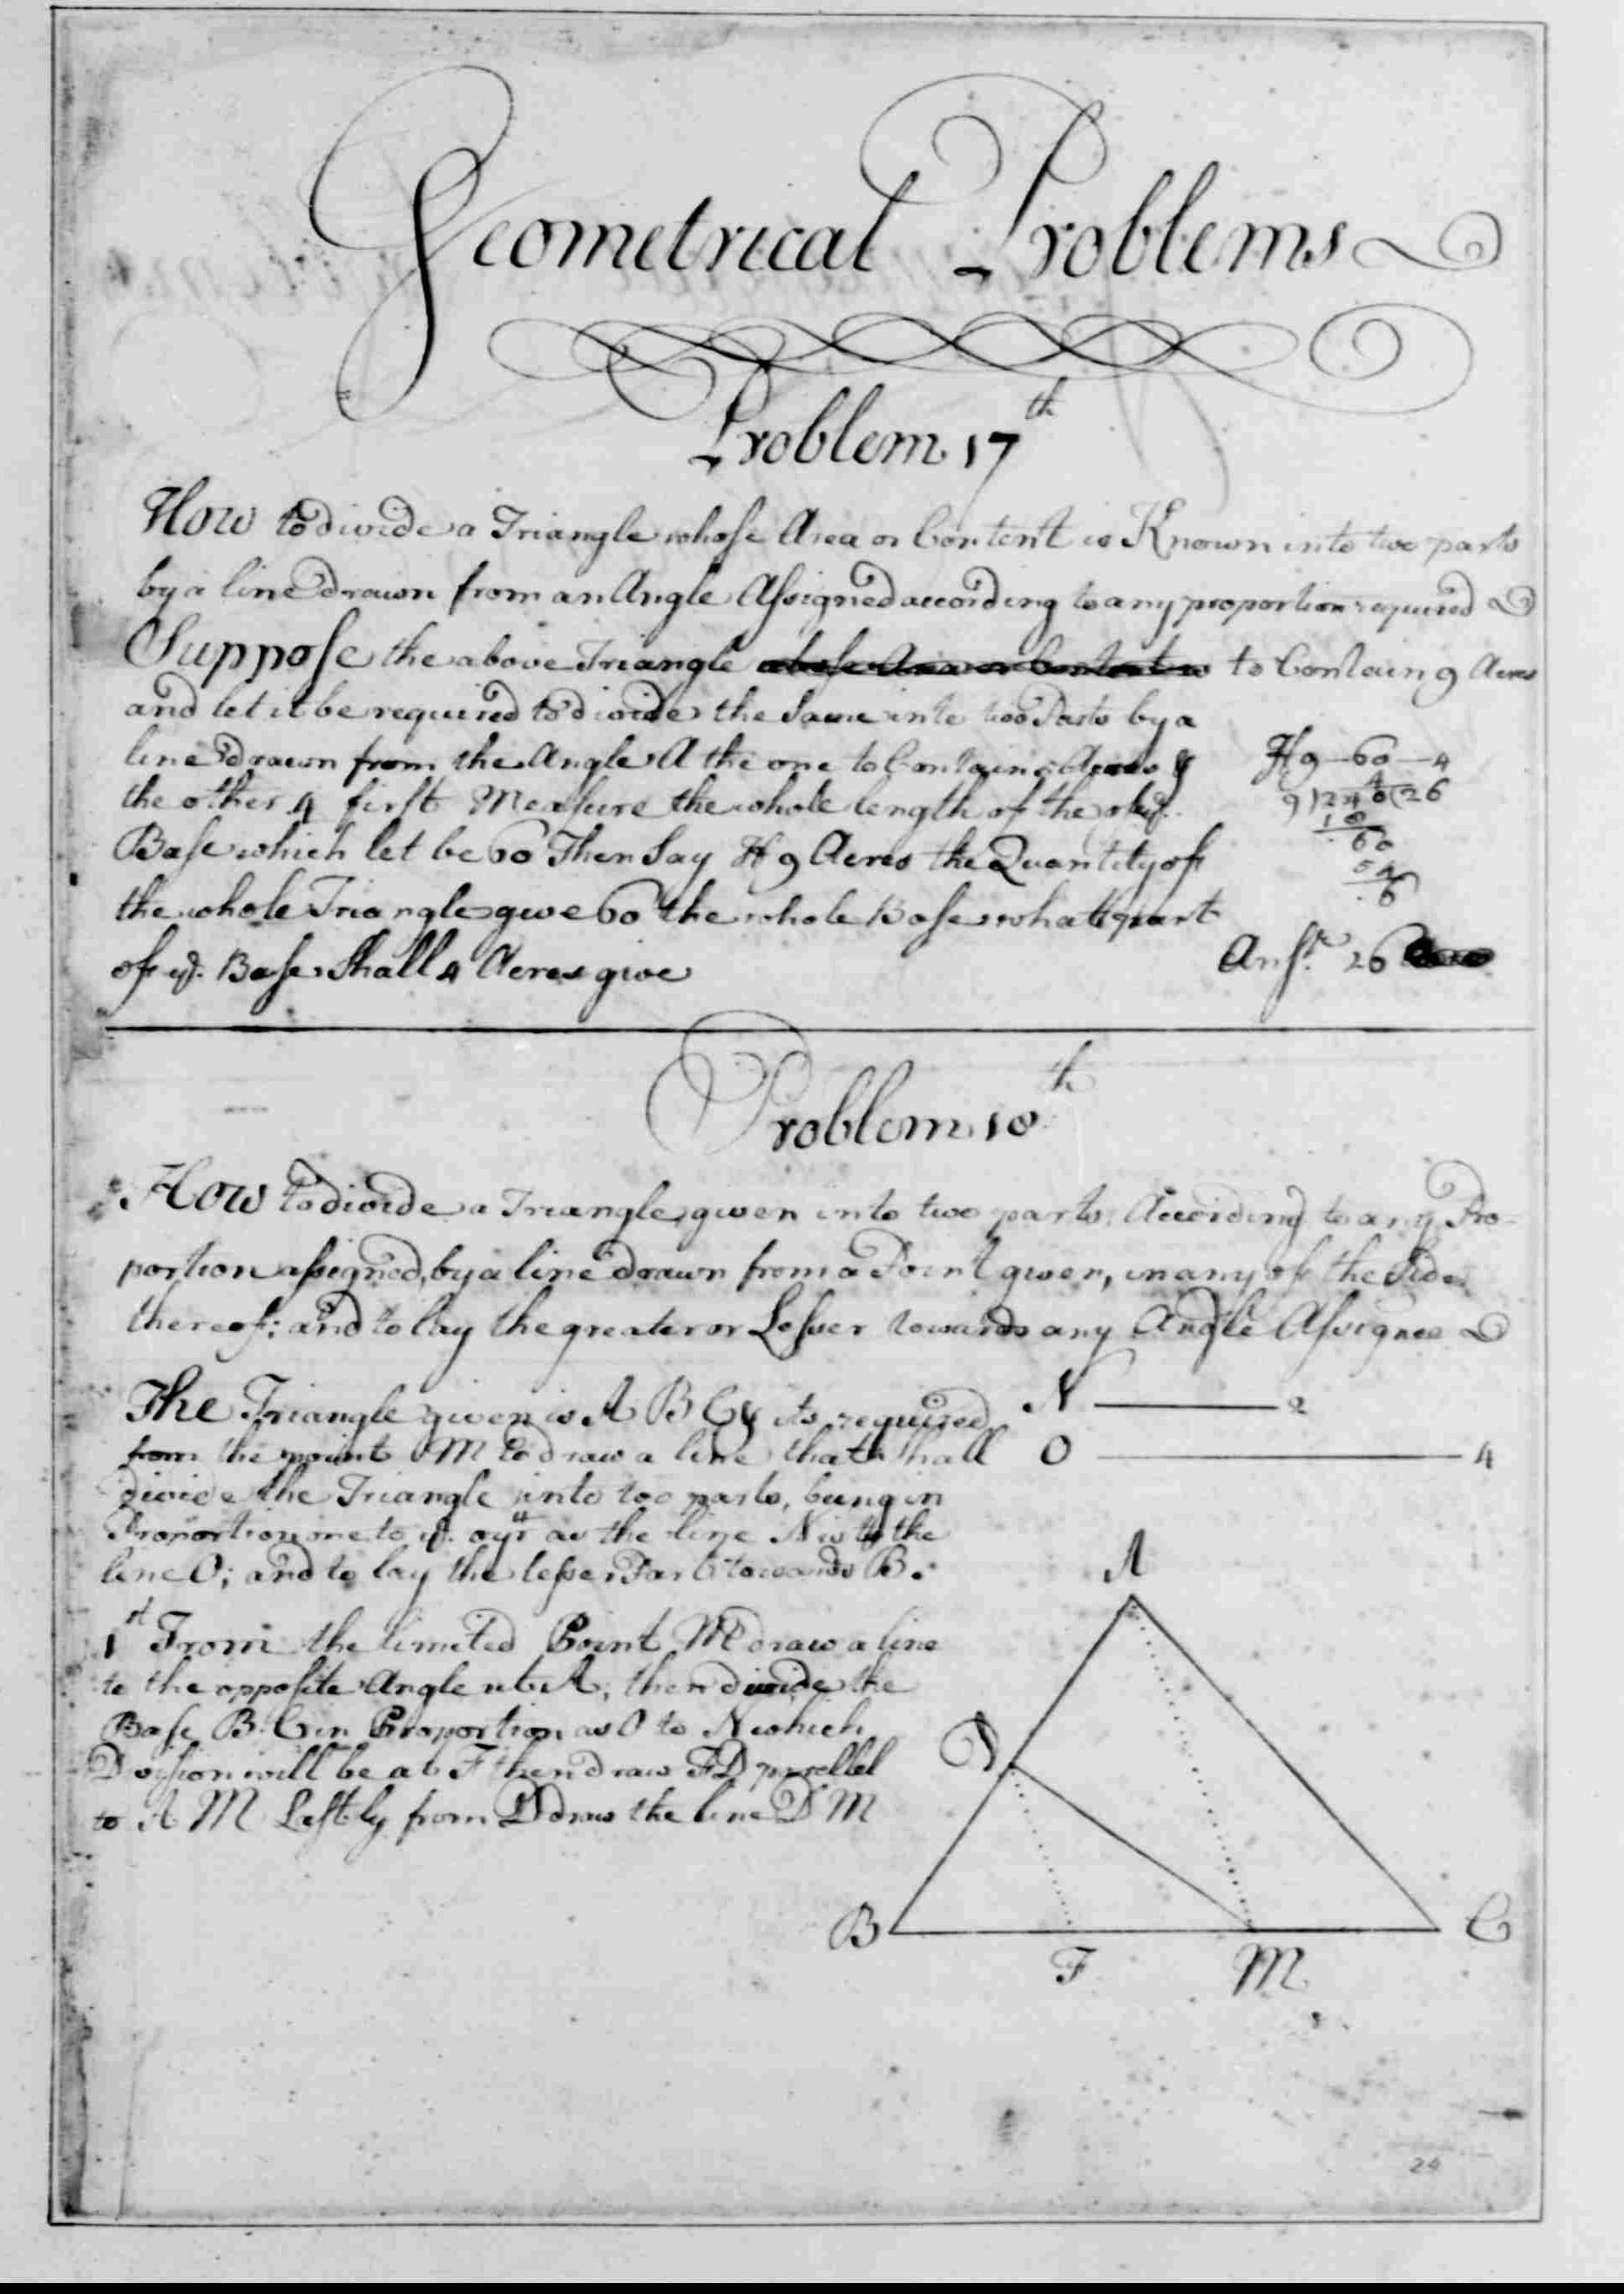 Geometrical Problems
Problem 17th
How to divide a Triangle whose Area or Content is Known into two parts
by a line drawn from an Angle Assigned according to any proportion required
Suppose the above Triangle whose Area or Content is to Contain 9 Acres
and let it be required to divide the Same into two Parts by a
line drawn from the Angle A the one to Contain 5 Acres &
the other 4 first Measure the whole length of the
Base which let be 60 Then Say If 9 Acres the Quantity of
the whole Triangle give 60 the whole Base what part
of ye. Base Shall 4 Acres give
If 9—60—4
4
9)240(26
18
60
54
6
Ansr. 26
Problem 18th
How to divide a Triangle given into two parts, According to any Pro-
portion assigned, by a line drawn from a Point given, in any of the Sides
thereof; and to lay the greater or Lesser towards any Angle Assigned
The Triangle given is A B C & its required
from the point M to draw a line that shall
divide the Triangle into too parts, being in
Proportion one to ye. oyr as the line N is to the
line O; and to lay the lesser Part towards B.
N 2
O 4
1st From the limited Point M draw a line
to the opposite Angle at A; then divide the
Base B C in Proportion as O to N which
Division will be at F then draw FD parellel
to A M Lastly from D draw the line D M
A
D
B
F
M
C
24